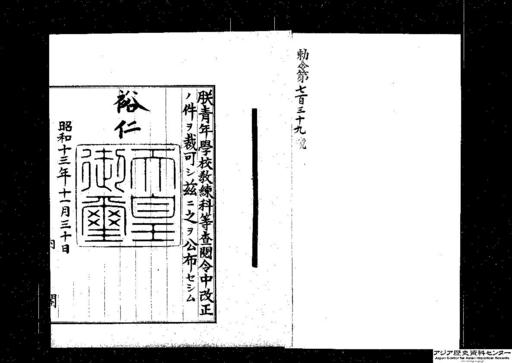 勅令第七百三十九號
朕青年學校教練科等査閲令中改正
ノ件ヲ裁可シ茲ニ之ヲ公布セシム
裕仁
天皇
御璽
昭和十三年十一月三十日
内
閣
アジア歴史資料センター
Japan Center for Asian Historical Records